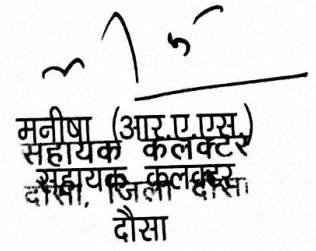 मनीषा (आर.ए.एस.)
सहायक कलक्टर
सहायक कलक्टर
दौसा, जिला दौसा
दौसा